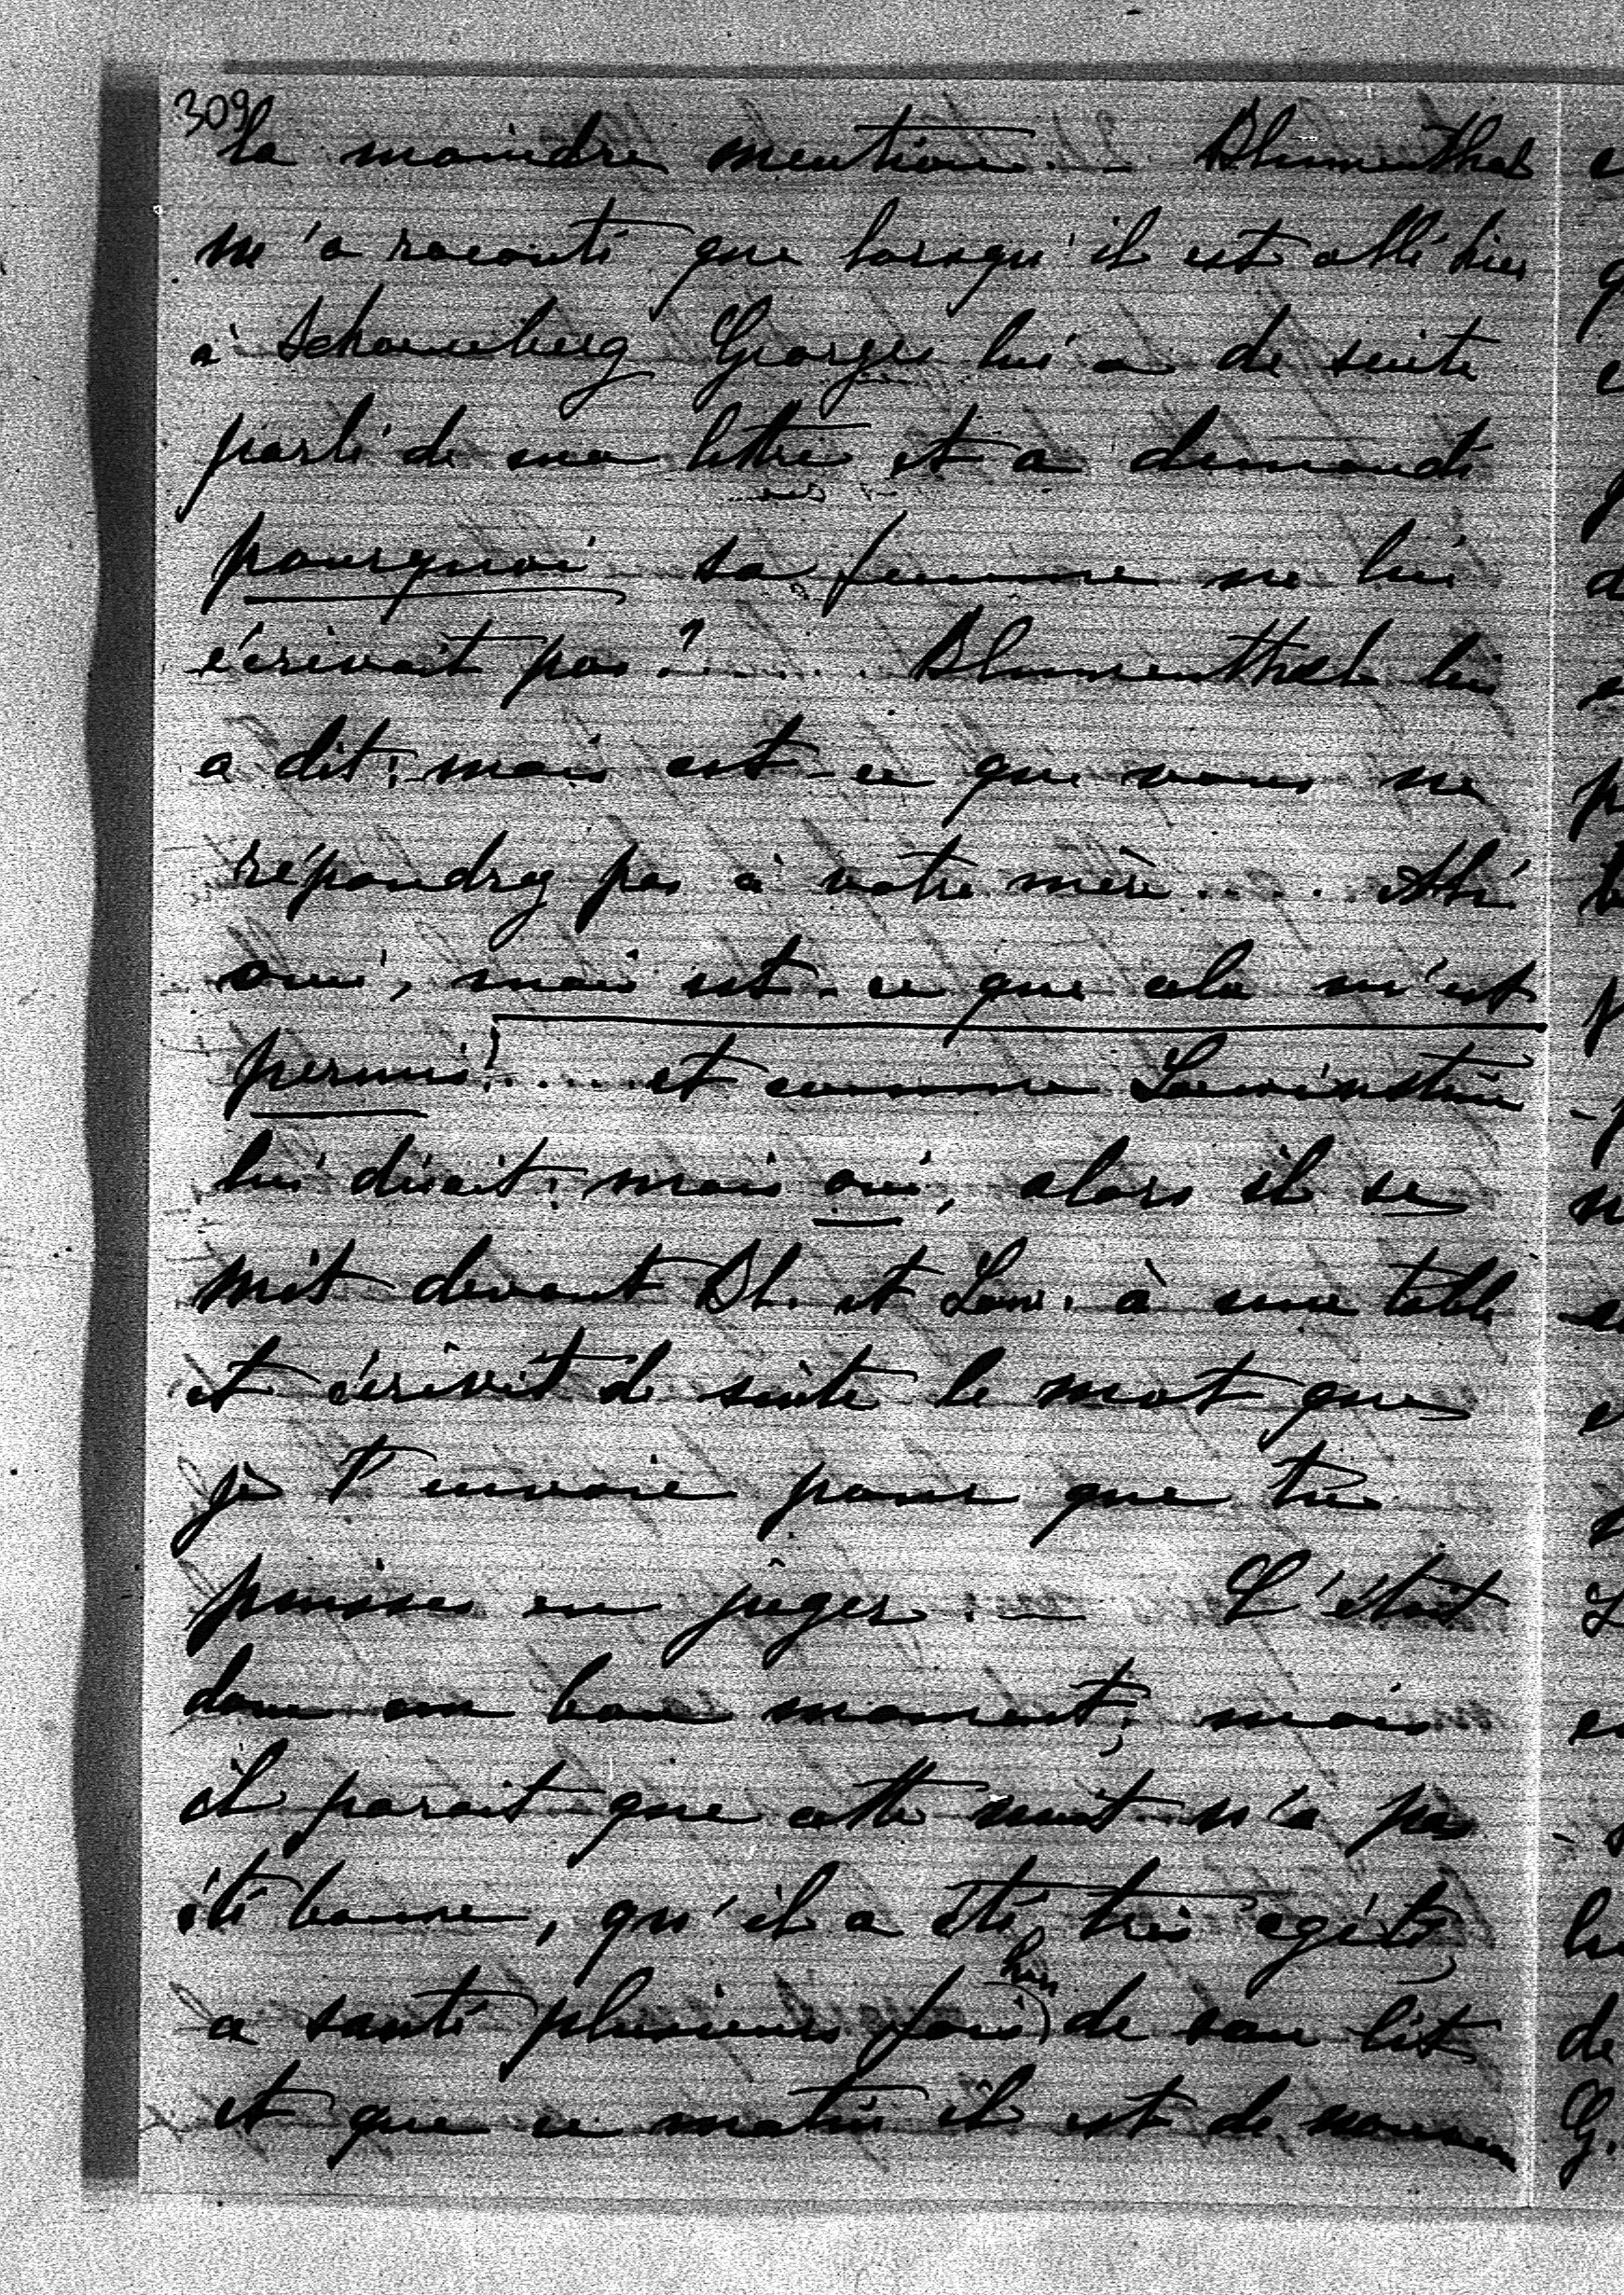 309
la moindre mention. — Blumenthal
m'a raconté que lorsqu'il est allé hier
à Schoeneberg Georges lui a de suite
parlé de ma lettre et a demandé
pourquoi sa femme ne lui
écrivait pas? ..... Blumenthal lui
a dit: mais est-ce que vous ne
répondrez pas à votre mère ..... Ah!
oui, mais est-ce que cela m'est
permis? ..... et comme Lowinstein
lui disait: mais oui, alors il se
mit devant Bl. et Low. à une table
et écrivit de suite le mot que
je t'envoie pour que tu
puisses en juger. — C'était
donc un bon moment; mais
il parait que cette nuit n'a pas
été bonne, qu'il a été très agité,
a sauté plusieurs fois hors de son lit
et que ce matin il est de nouveau